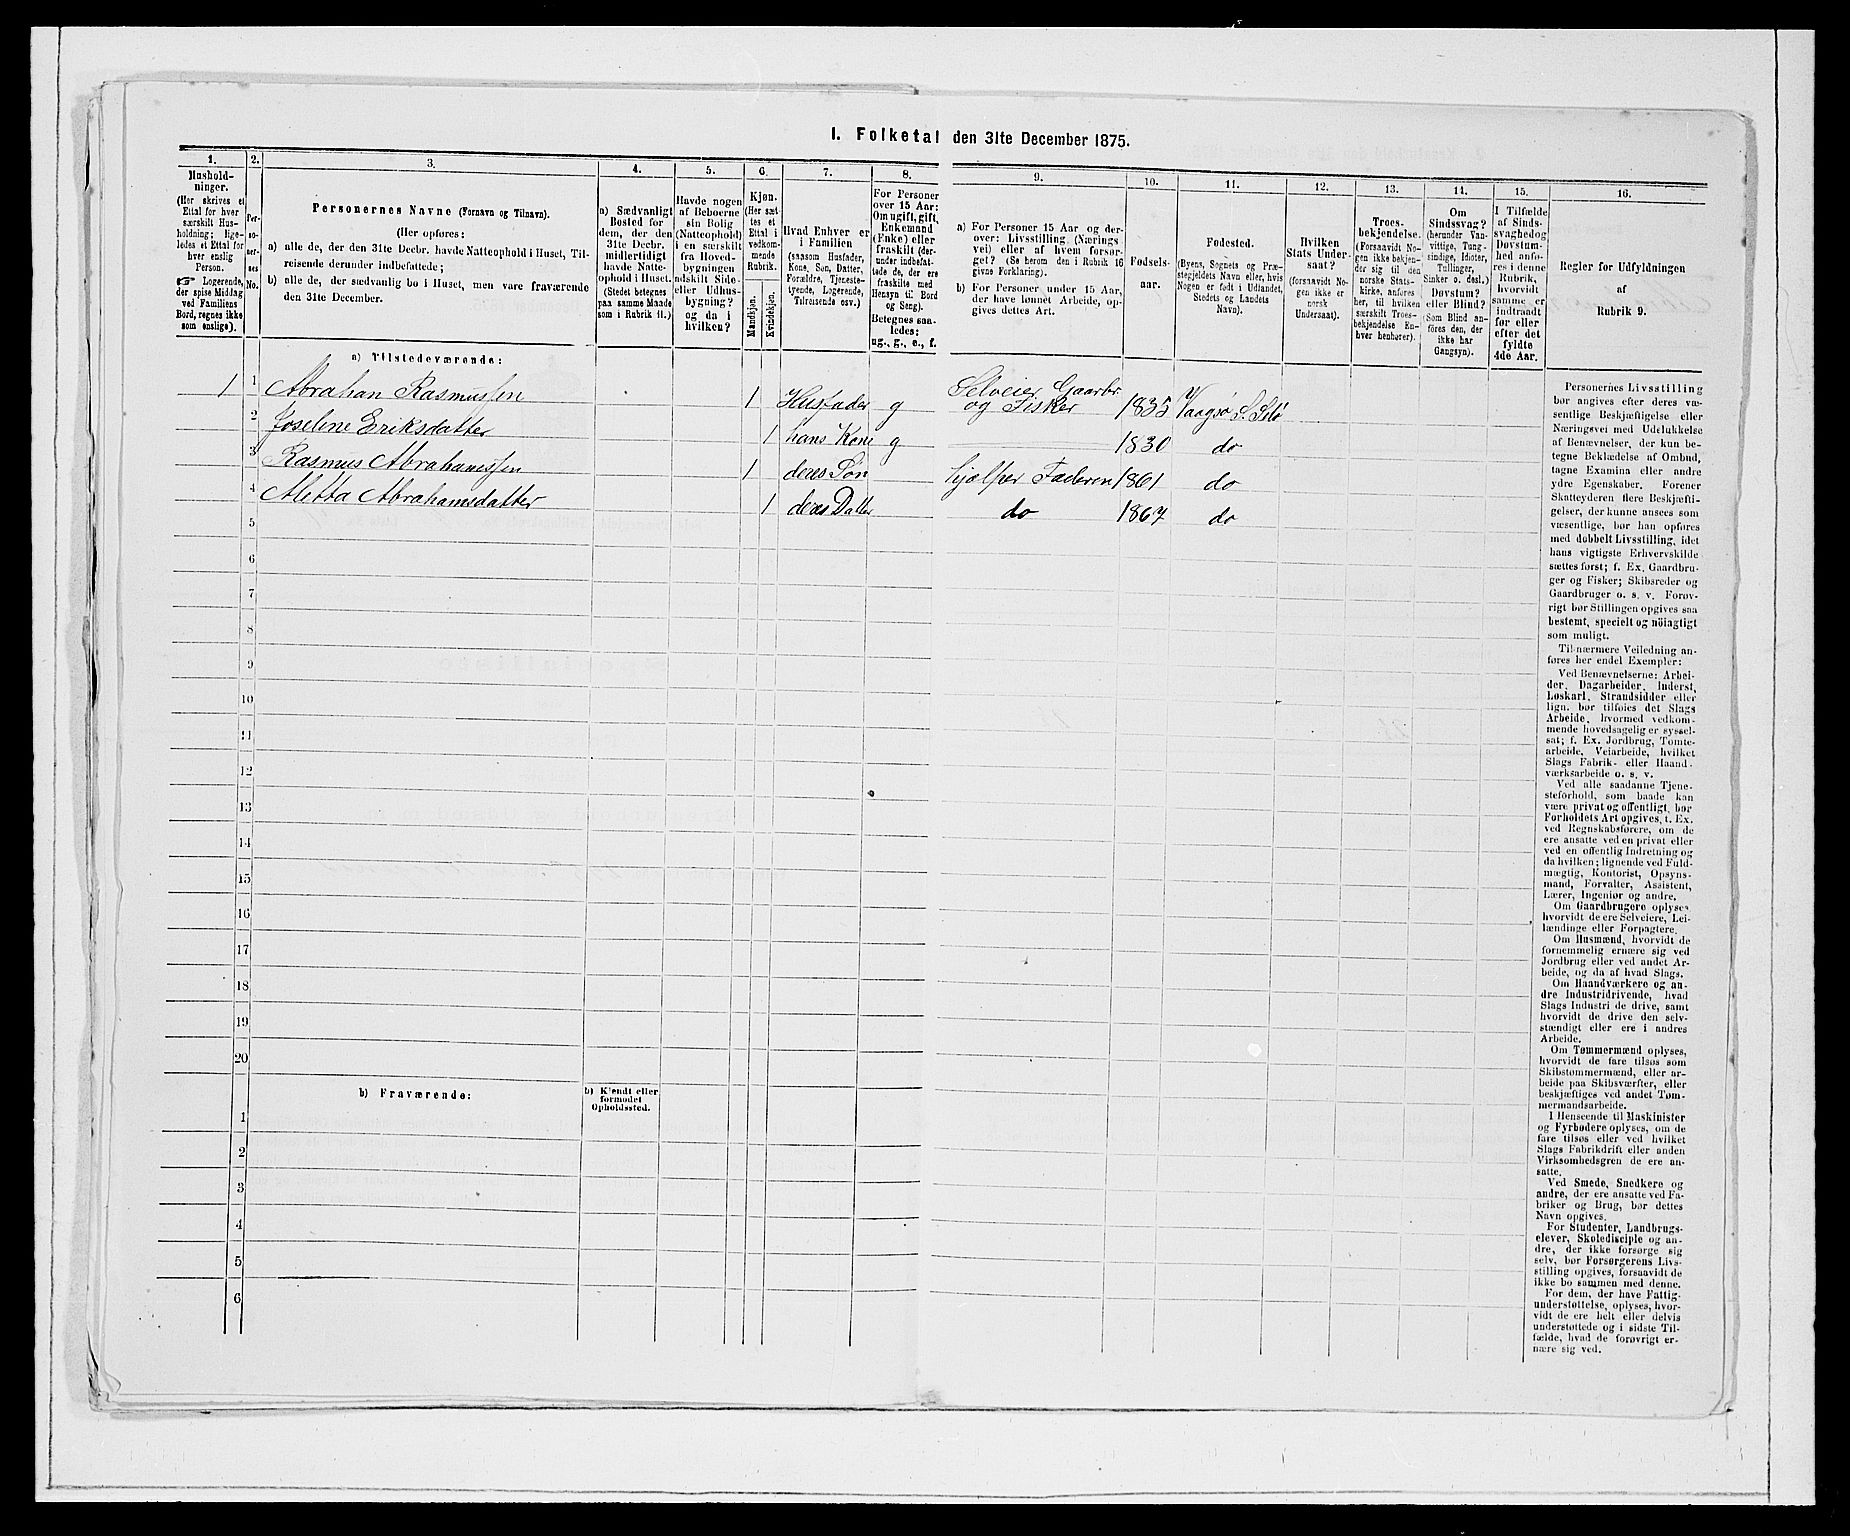 I. Folketal den 31te December 1875.
1. 2. 3. 4. 5. 6. 7. 8. 9. 10. 11. 12. 13. 14. 15. 16.
Hushold-
ninger.
(Her skrives et
Ettal for hver
særskilt Hus-
holdning; lige-
ledes et Ettal for
hver enslig
Person.
Logerende,
der spise Middag
ved Familiens
Bord, regnes ikke
som enslige).
Per-
so-
ner-
nes
No.
Personernes Navne (Fornavn og Tilnavn).
(Her opføres:
a) alle de, der den 31te Decbr. havde Natteophold i Huset, Til-
reisende derunder indbefattede;
b) alle de, der sædvanlig bo i Huset, men vare fraværende
den 31te December.
a) Sædvanligt
Bosted for
dem, der den
31te Decbr.
midlertidigt
havde Natte-
ophold i Huset.
(Stedet betegnes
paa samme Maade
som i Rubrik 11.)
Havde nogen
af Beboerne
sin Bolig
(Natteophold)
i en særskilt
fra Hoved-
bygningen
adskilt Side-
eller Udhus-
bygning?
og da i
hvilken?
Kjøn.
(Her sæt-
tes et
Ettal i
vedkom-
mende
Rubrik.
Mandkjøn.
Kvindekjøn.
Hvad Enhver er
i Familien
(saasom Husfader,
Kone, Søn, Datter,
Forældre, Tjeneste-
tyende, Logerende,
Tilreisende osv.)
For Personer
over 15 Aar:
Om ugift, gift,
Enkemand
(Enke) eller
fraskilt (der-
under indbefat-
tede de, der ere
fraskilte med
Hensyn til Bord
og Seng).
Betegnes saa-
ledes:
ug., g., e., f.
a) For Personer 15 Aar og der-
over: Livsstilling (Nærings
vei) eller af hvem forsør-
get? (Se herom den i Rubrik 16
givne Forklaring).
b) For Personer under 15 Aar,
der have lønnet Arbeide, op-
gives dettes Art.
Fødsels-
aar.
Fødested.
(Byens, Sognets og Præ-
stegjeldets Navn eller, hvis
Nogen er født i Udlandet,
Stedets og Landets
Navn).
Hvilken
Stats Under-
saat?
(forsaavidt No-
gen ikke er
norsk
Undersaat).
Troes-
bekjendelse.
(Forsaavidt No-
gen ikke bekjen-
der sig til den
norske Stats-
kirke, anføres
her, til hvilken
særskilt Troes-
bekjendelse En-
hver henhører).
Om
Sindssvag?
(herunder Van-
vittige, Tung-
sindige, Idioter,
Tullinger,
Sinker o. desl.)
Døvstum?
eller Blind?
(Som Blind an-
føres den, der
ikke har
Gangsyn).
I Tilfælde
af Sinds-
svaghed og
Døvstum-
hed anfø-
res i denne
Rubrik,
hvorvidt
samme er
indtraadt
før eller
efter det
fyldte
4de Aar.
Regler for Udfyldningen
af
Rubrik 9.
a) Tilstedeværende:
1 1 Abraham Rasmussen 1 Husfader g Selveier Gaardbr. og Fisker 1835 Vaagsø S. Selø
2 Joseline Eriksdatter 1 hans Kone g 1830 do
3 Rasmus Abrahamssen 1 deres Søn hjælper Faderen 1861 do
4 Aletta Abrahamsdatter 1 deres Datter do 1867 do
5
6
7
8
9
10
11
12
13
14
15
16
17
18
19
20
b) Fraværende:
b) Kjendt eller
formodet
Opholdssted.
1
2
3
4
5
6
Personernes Livsstilling
bør angives efter deres væ-
sentlige Beskjæftigelse eller
Næringsvei med Udelukkelse
af Benævnelser, der kun be-
tegne Beklædelse af Ombud,
tagne Examina eller andre
ydre Egenskaber. Forener
Skatteyderen flere Beskjæfti-
gelser, der kunne ansees som
væsentlige, bør han opføres
med dobbelt Livsstilling, idet
hans vigtigste Erhvervskilde
sættes først; f. Ex. Gaardbru-
ger og Fisker; Skibsreder og
Gaardbruger o. s. v. Forøv-
rigt bør Stillingen opgives saa
bestemt, specielt og nöiagtigt
som muligt.
Til nærmere Veiledning an-
føres her endel Exempler:
Ved Benævnelserne: Arbei-
der, Dagarbeider, Inderst,
Løskarl, Strandsidder eller
lign. bør tilføies det Slags
Arbeide, hvormed vedkom-
mende hovedsagelig er syssel-
sat; f. Ex. Jordbrug, Tomte-
arbeide, Veiarbeide, hvilket
Slags Fabrik- eller Haand-
værksarbeide o. s. v.
Ved alle saadanne Tjene-
steforhold, som baade kan
være privat og offentligt, bør
Forholdets Art opgives, t. Ex.
ved Regnskabsførere, om de
ere ansatte ved en privat eller
ved en offentlig Indretning og
da hvilken; lignende ved Fuld-
mægtig, Kontorist, Opsyns-
mand, Forvalter, Assistent,
Lærer, Ingeniør og andre.
Om Gaardbrugere oplyses,
hvorvidt de ere Selveiere, Lei-
lændinge eller Forpagtere.
Om Husmænd, hvorvidt de
fornemmelig ernære sig ved
Jordbrug eller ved andet Ar-
beide, og da af hvad Slags.
Om Haandværkere og an-
dre Industridrivende, hvad
Slags Industri de drive, samt
hvorvidt de drive den selv-
stændigt eller ere i andres
Arbeide.
Om Tømmermænd oplyses,
hvorvidt de fare tilsøs som
Skibstømmermænd, eller ar-
beide paa Skibsværfter, eller
beskjæftiges ved andet Tøm-
mermandsarbeide.
I Henseende til Maskinister
og Fyrbødere oplyses, om de
fare tilsøs eller ved hvilket
Slags Fabrikdrift eller anden
Virksomhedsgren de ere an-
satte.
Ved Smede, Snedkere og
andre, der ere ansatte ved Fa-
briker og Brug, bør dettes
Navn opgives.
For Studenter, Landbrugs-
elever, Skoledisciple og an-
dre, der ikke forsørge sig
selv, bør Forsørgerens Livs-
stilling opgives, forsaavidt de
ikke bo sammen med denne.
For dem, der have Fattig-
understøttelse, oplyses, hvor-
vidt de ere helt eller delvis
understøttede og i sidste Til-
fælde, hvad de forøvrigt er-
nære sig ved.